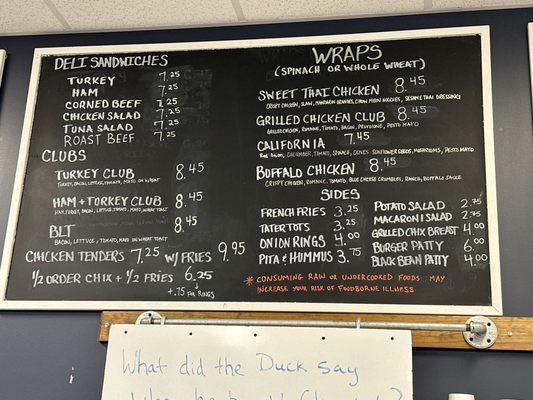 DELI SANDWICHES
TURKEY 7.25
HAM 7.25
CORNED BEEF 7.25
CHICKEN SALAD 7.25
TUNA SALAD 7.25
ROAST BEEF 7.25
CLUBS
TURKEY CLUB 8.45
TURKEY, BACON, LETTUCE, TOMATO, MAYO ON WHEAT
HAM + TURKEY CLUB 8.45
HAM, TURKEY, BACON, LETTUCE, TOMATO, MAYO, WHEAT TOAST
BLT 8.45
BACON, LETTUCE, TOMATO, MAYO ON WHEAT TOAST
CHICKEN TENDERS 7.25 W/FRIES 9.95
1/2 ORDER CHIX + 1/2 FRIES 6.25
+.75 FOR RINGS
WRAPS
(SPINACH OR WHOLE WHEAT)
SWEET THAI CHICKEN 8.45
CRISPY CHICKEN, SLAW, MANDARIN ORANGES, CHOW MEIN NOODLES, SESAME THAI DRESSING
GRILLED CHICKEN CLUB 8.45
GRILLED CHICKEN, ROMAINE, TOMATO, BACON, PROVOLONE, PESTO MAYO
CALIFORNIA 7.45
RED ONION, CUCUMBER, TOMATO, SPINACH, OLIVES, SUNFLOWER SEEDS, MUSHROOMS, PESTO MAYO
BUFFALO CHICKEN 8.45
CRISPY CHICKEN, ROMAINE, TOMATO, BLUE CHEESE CRUMBLES, RANCH, BUFFALO SAUCE
SIDES
FRENCH FRIES 3.25
TATER TOTS 3.25
ONION RINGS 4.00
PITA & HUMMUS 3.75
POTATO SALAD 2.75
MACARONI SALAD 2.75
GRILLED CHIX BREAST 4.00
BURGER PATTY 6.00
BLACK BEAN PATTY 4.00
* CONSUMING RAW OR UNDERCOOKED FOODS MAY
INCREASE YOUR RISK OF FOODBORNE ILLNESS
What did the Duck say